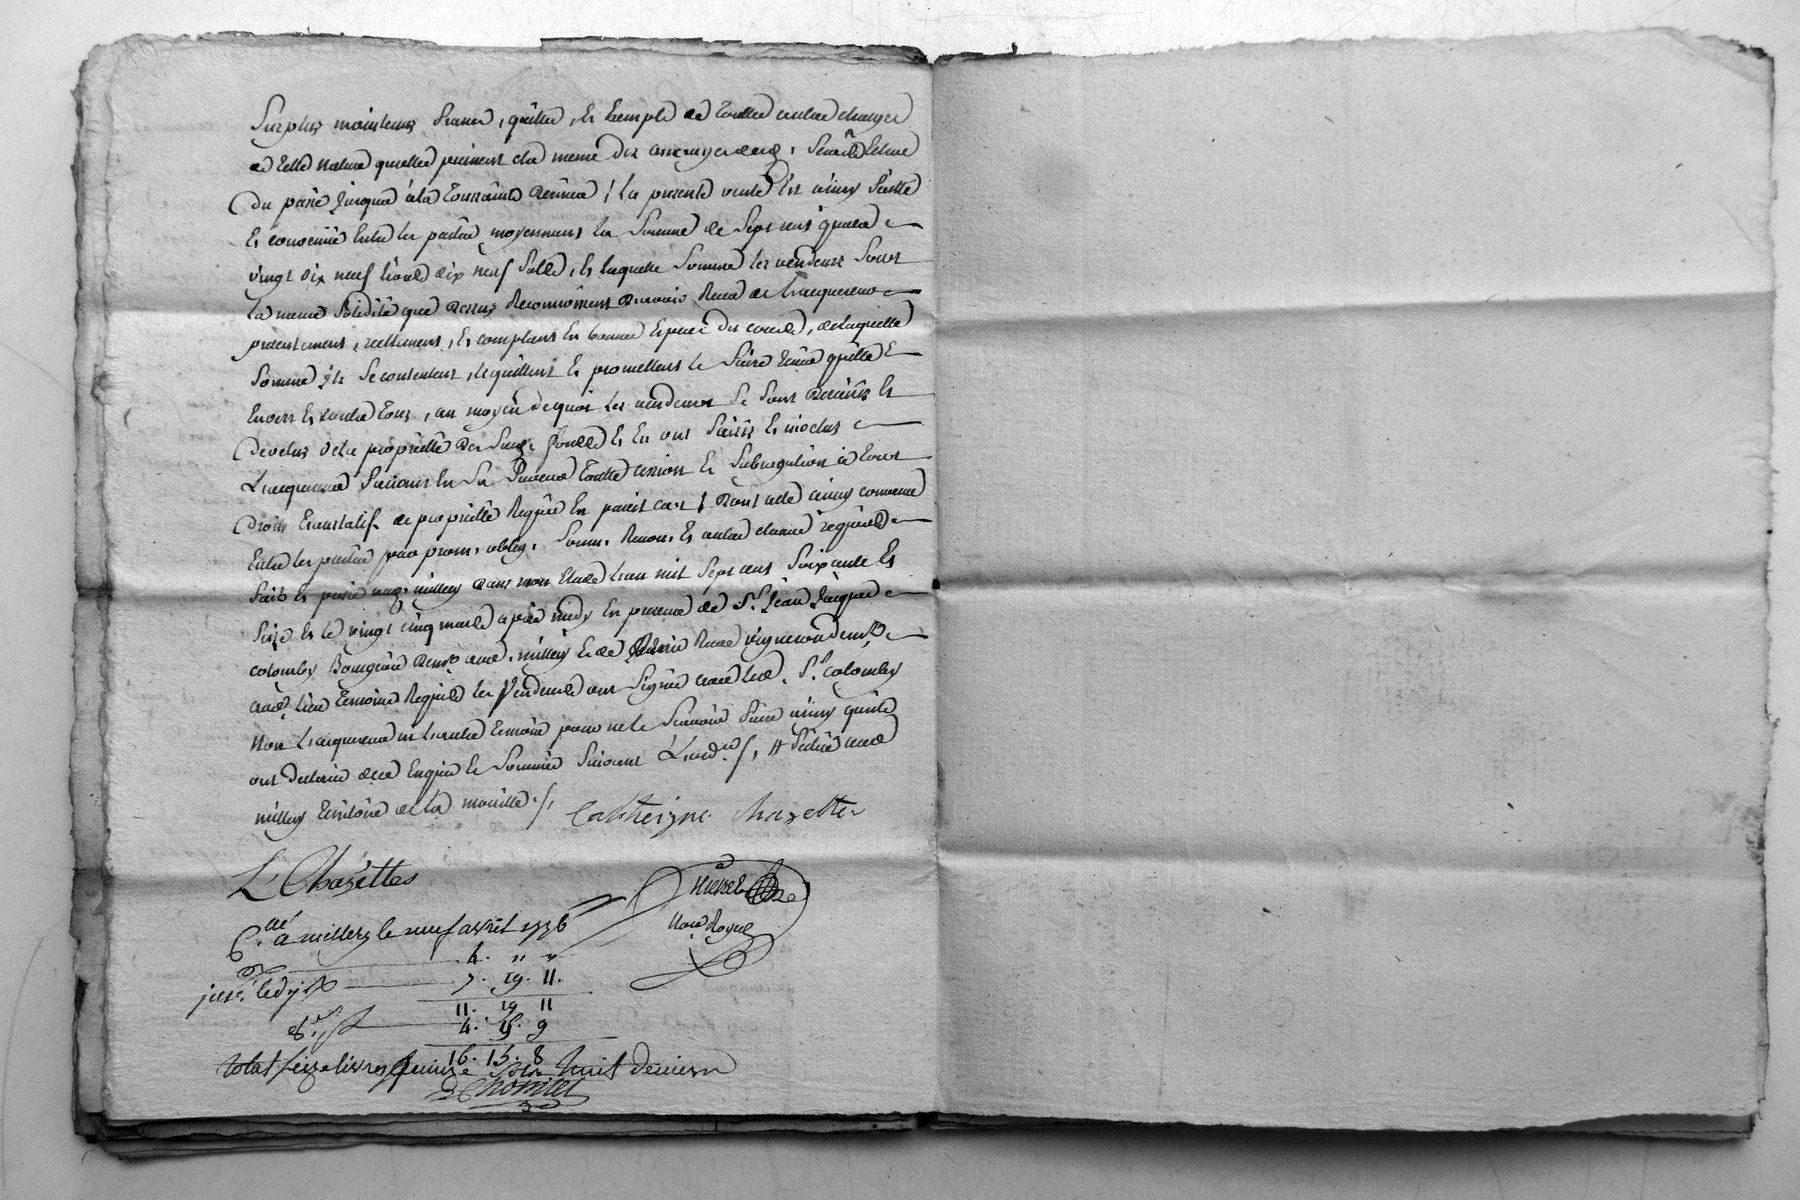 Surplus moienant franc, quitte, et Exempte de toutte autre charge
de telle nature quelle puissent etre meme des arrerages de
Du passé jusques a la Toussaints derniere / La presente vente Est ainsy faitte
Et convenüe Entre les parties moyennant la Somme de Sept cent quatre
vingt dix neuf livres dix neuf Sols, Et laquelle Somme les vendeurs Sous
la meme solidité que dessus Reconnoissent d'avoir Receu de L'acquereur
presentement, reellement, Et comptant En bonnes Especes du cours, de laquelle
Somme ils Se contentent, L'equittent Et promettent le faire tenir quitte
Envers Et contre tous, au moyen de quoi les vendeurs Se Sont demis Et
Devetus de la proprietté des Susd. fonds Et En ont Saisis Et investus
L'acquereur Suivant En Sa Faveur toutte cession Et Subrogation à tous
Droits translatifs de proprietté Requise En pareil cas / Dont acte ainsy convenu
Entre les parties par prom. oblig. Soum. Renon. Et autres clauses requises
fait Et passé aud. millery dans mon Etude L'an mil Sept cens Soixante Et
Seize Et le vingt cinq mars apres midy En presence de Sr. Jean Jacques
colomby Bourgeois demt. aud. millery Et de vigneron demt.
aud. lieu temoins Requis les Vendeurs ont Signés avec led. Sr. colomby
Non L'acquereur ni L'autre temoin pour ne le Scavoir faire ainsy qu'ils
ont declaré de ce Enquis Et Sommés Suivant L'ord.ce /, # Scitué aud.
millery territoire de la mouille /,
Catherigne Chazettes
L Chazettes
No.re Royal
C.llé a millery le neuf avril 1776
4. " "
7. 19. 11.
11. 19 11
4. 15. 9
16. 15. 8
total Seize livres quinze Sols huit deniers